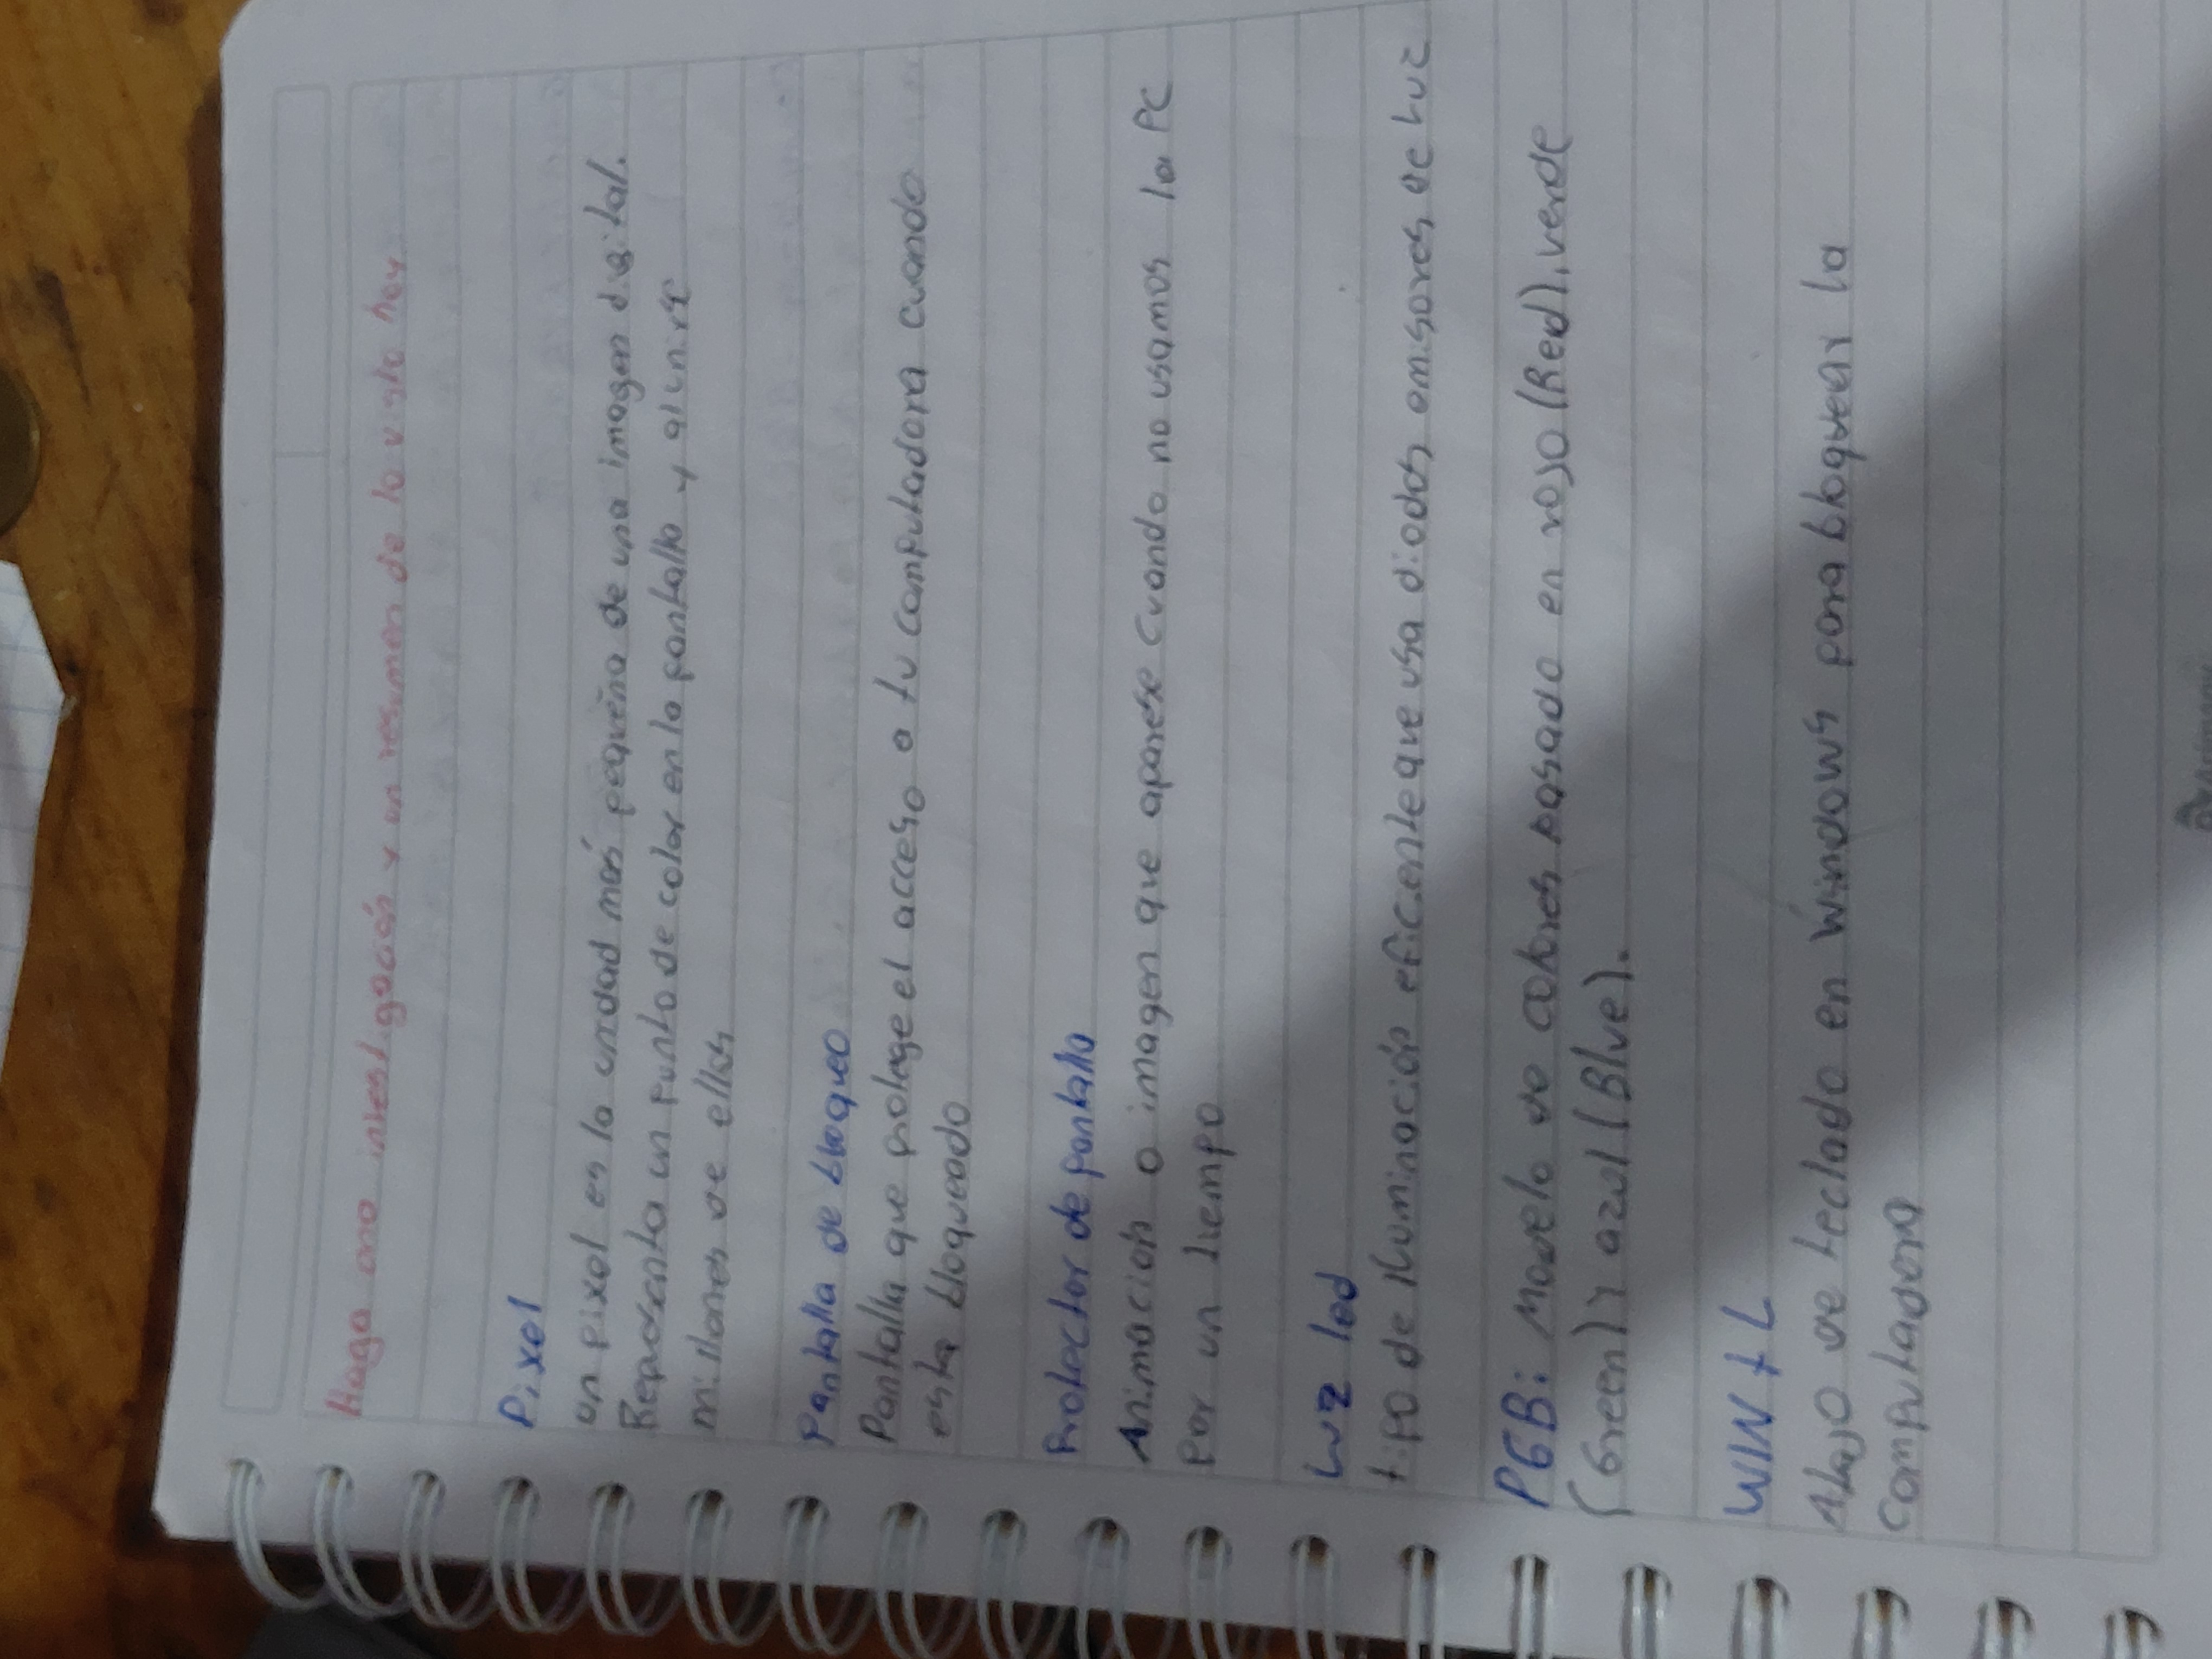 Haga una investigación y un resumen de lo visto hoy
Pixel
un pixel es la unidad más pequeña de una imagen digital.
Representa un punto de color en la pantalla y al unirse
millones de ellos
Pantalla de bloqueo
Pantalla que protege el acceso a tu computadora cuando
esta bloqueado
Protector de pantalla
Animación o imagen que aparese cuando no usamos la PC
por un tiempo
Luz led
tipo de iluminación eficiente que usa diodos emisores de luz
RGB: Modelo de colores basado en rojo (Red), verde
(Green) y azul (Blue).
WIN + L
Atajo de teclado en windows para bloquear la
computadora